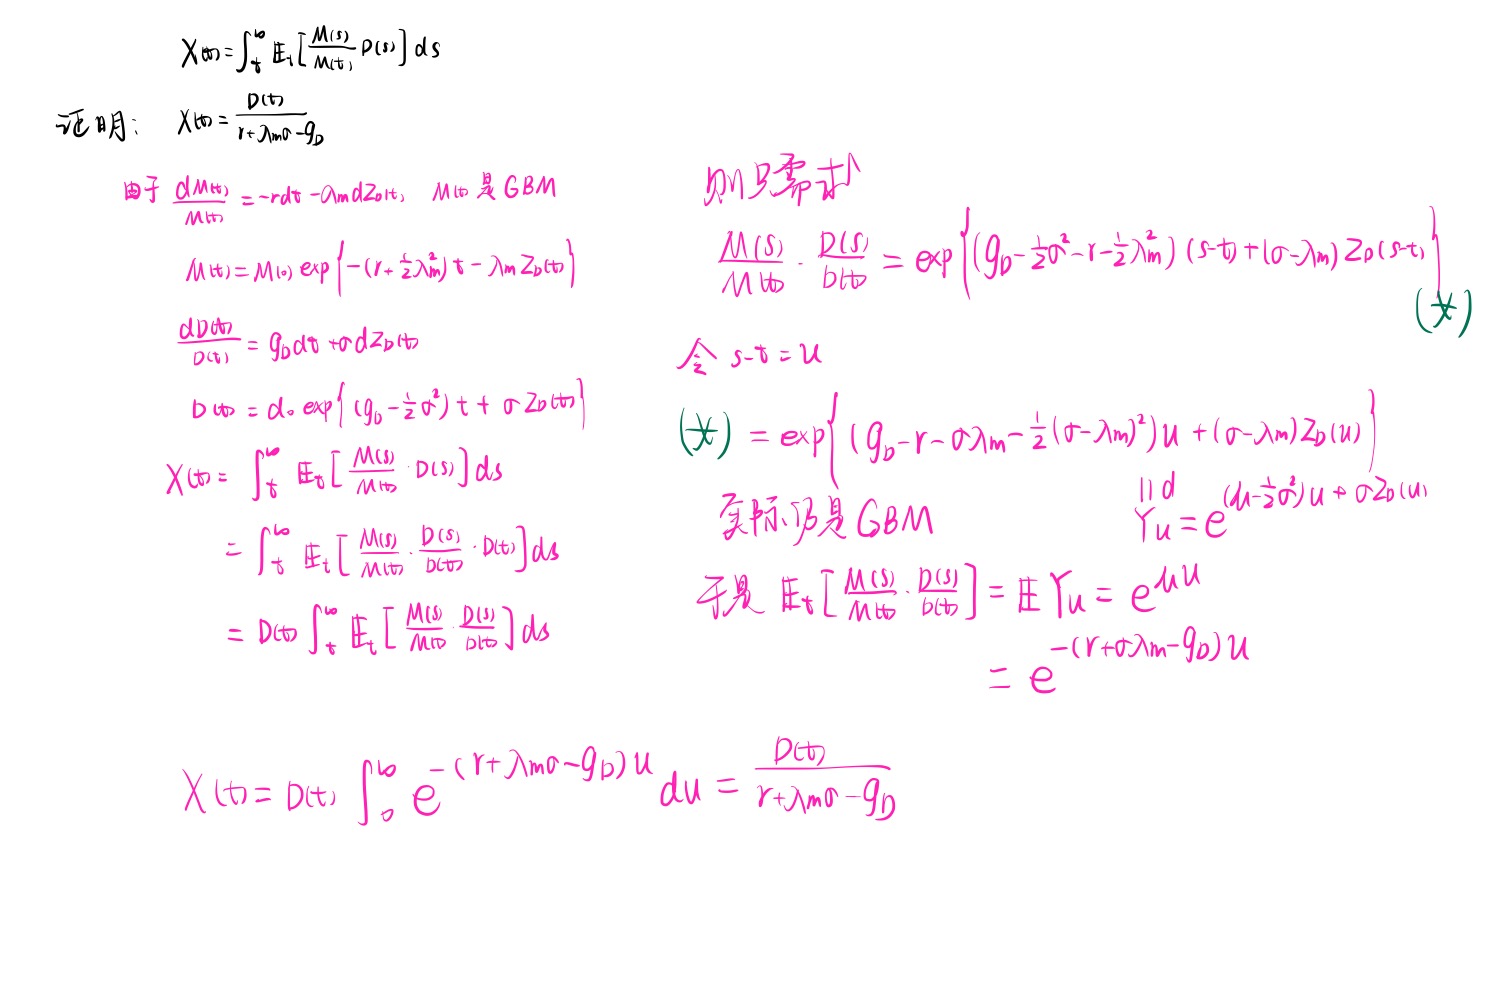 X(t) = ∫_t^∞ 𝔼_t [ M(s)/M(t) D(s) ] ds
证明: X(t) = D(t)/(r+λ_mσ-g_D)
由于 dM(t)/M(t) = -rdt - σ_m dZ_D(t), M(t) 是 GBM
M(t) = M(0) exp{ -(r+½λ_m²)t - λ_m Z_D(t) }
dD(t)/D(t) = g_D dt + σ dZ_D(t)
D(t) = d_0 exp{ (g_D - ½σ²)t + σZ_D(t) }
X(t) = ∫_t^∞ 𝔼_t [ M(s)/M(t) · D(s) ] ds
= ∫_t^∞ 𝔼_t [ M(s)/M(t) · D(s)/D(t) · D(t) ] ds
= D(t) ∫_t^∞ 𝔼_t [ M(s)/M(t) · D(s)/D(t) ] ds
则只需求
M(s)/M(t) · D(s)/D(t) = exp{ (g_D - ½σ² - r - ½λ_m²)(s-t) + (σ-λ_m) Z_D(s-t) }
(*)
令 s-t = u
(*) = exp{ (g_D - r - σλ_m - ½(σ-λ_m)²)u + (σ-λ_m)Z_D(u) }
|| d
实际仍是 GBM Y_u = e^{(μ-½σ²)u + σZ_D(u)}
于是 𝔼_t [ M(s)/M(t) · D(s)/D(t) ] = 𝔼 Y_u = e^{μu}
= e^{-(r+σλ_m-g_D)u}
X(t) = D(t) ∫_0^∞ e^{-(r+λ_mσ-g_D)u} du = D(t)/(r+λ_mσ-g_D)